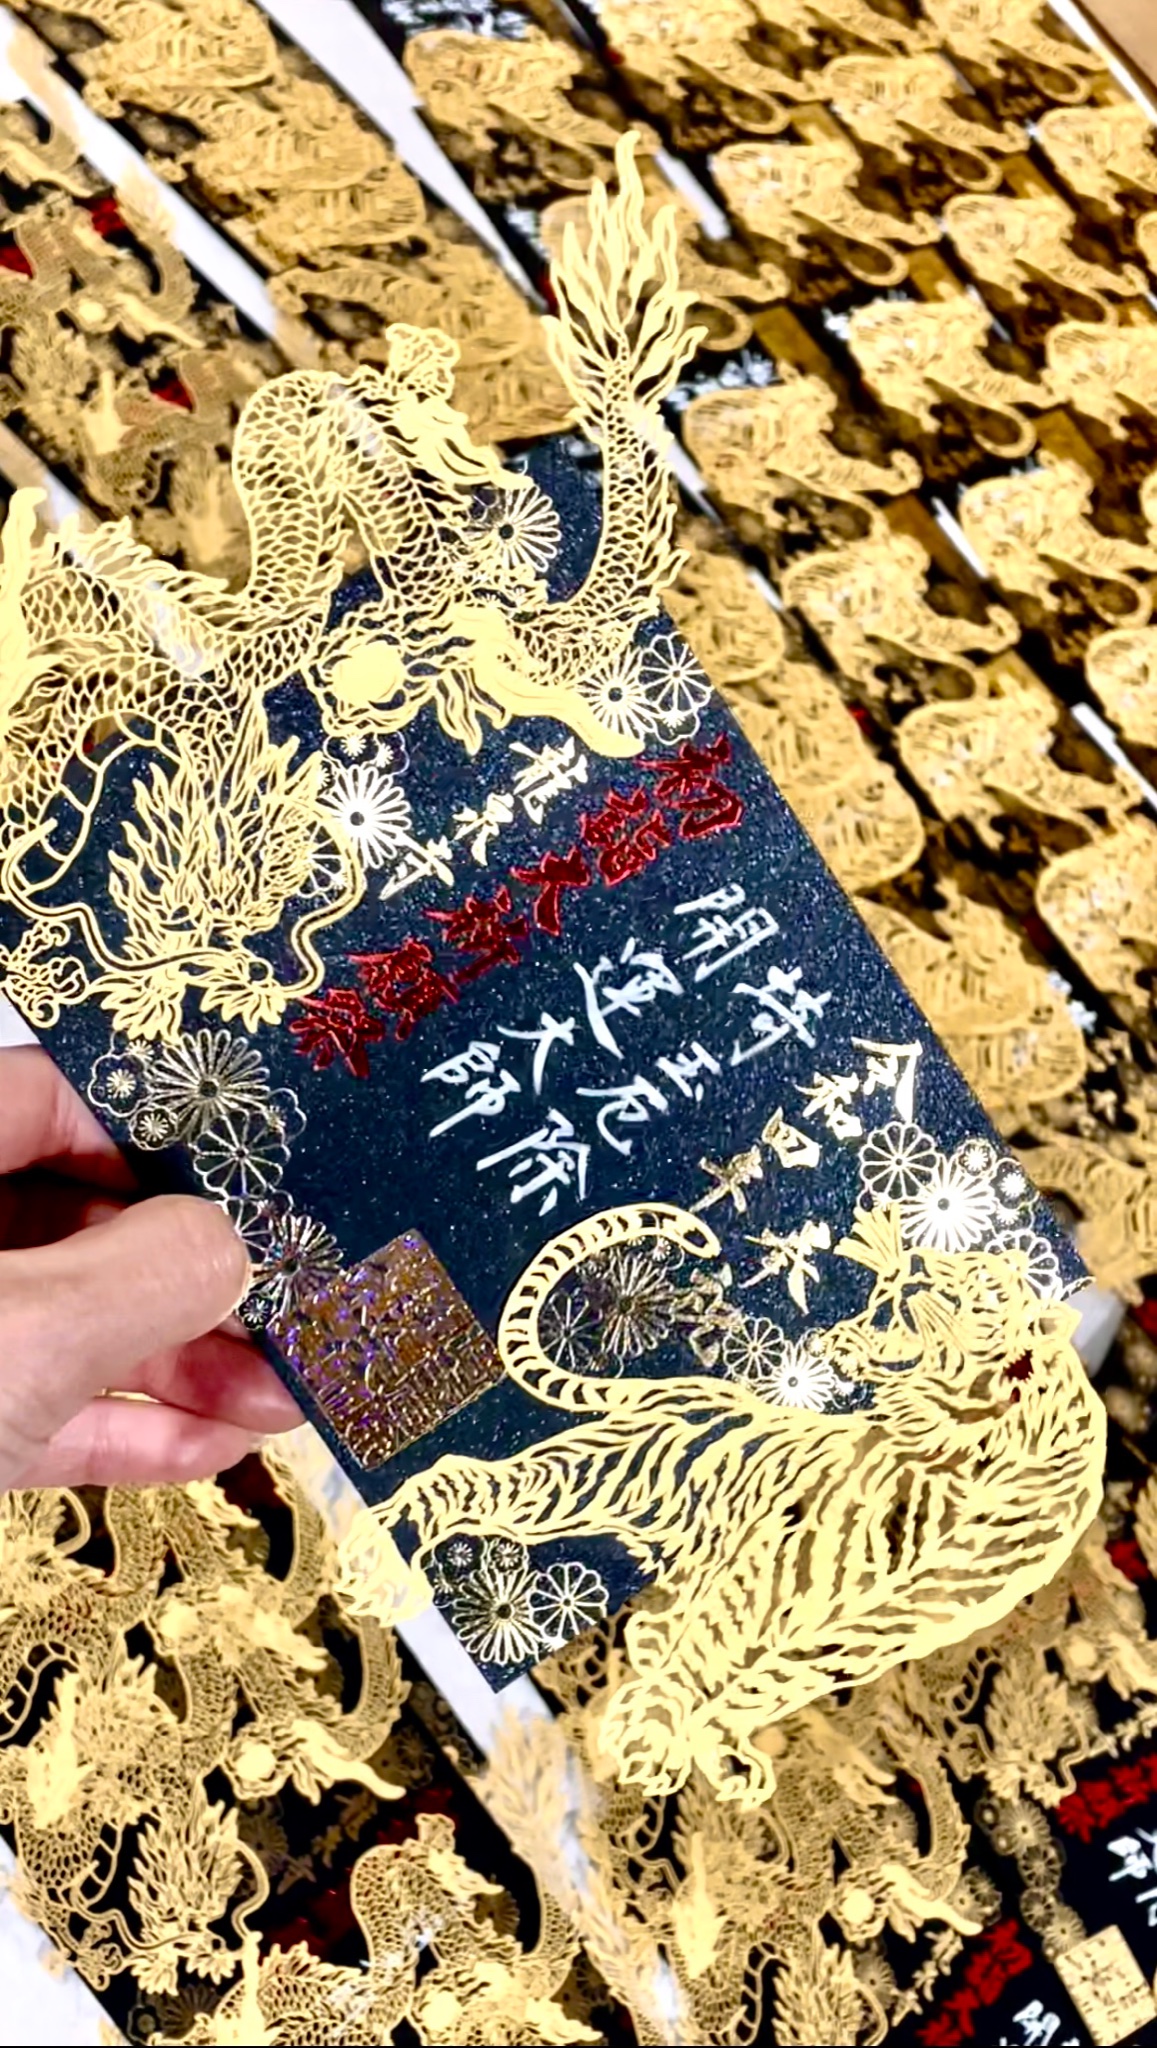 令和四年
持玉厄除
開運大師
初詣大祈願祭
龍泉寺